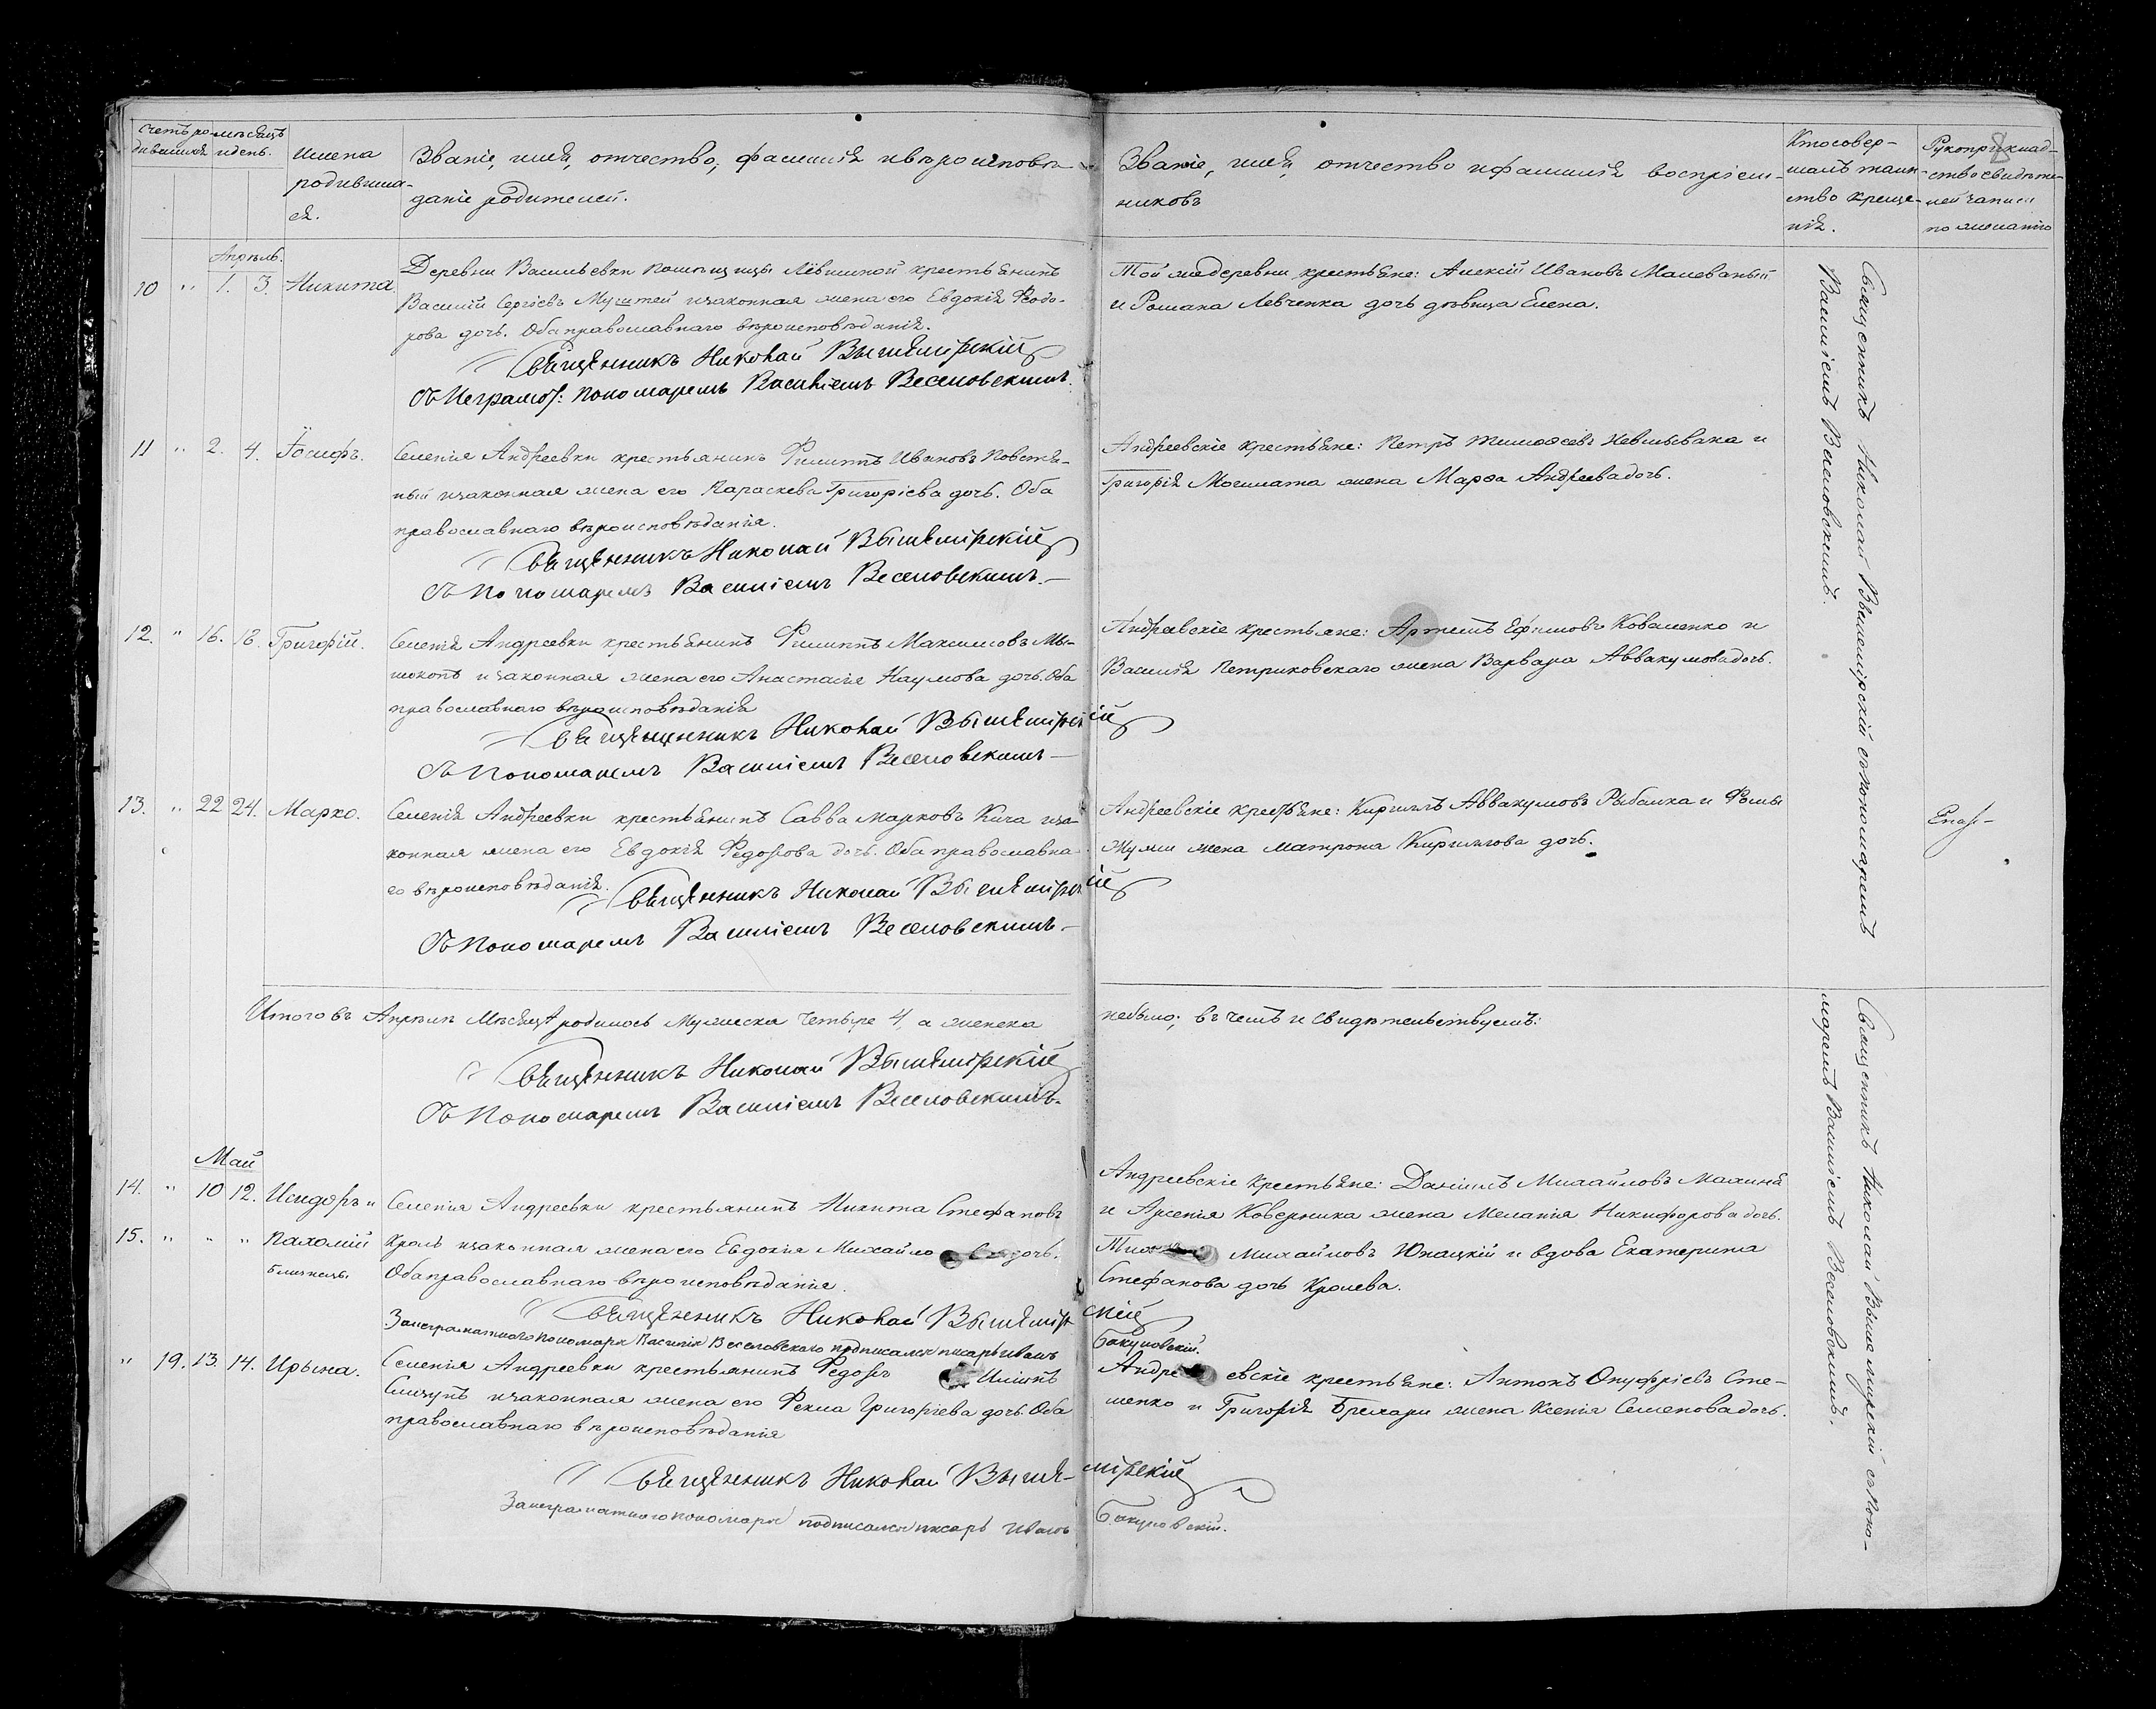 Счетъ ро-
дившихся
мѣсяцъ
и день.
Имена
родивших-
ся.
Званіе, имя, отчество, фамилія и вѣроисповѣ-
даніе родителей.
Званіе, имя, отчество и фамилія воспріем-
никовъ
Кто совер-
шалъ таин-
ство креще-
нія.
Рукоприклад-
ство свидѣте-
лей записи
по желанію
8
Апрѣль.
10 " 1. 3. Никита
Деревни Васильевки помѣщицы Лёвшиной крестьянинъ
Василій Сергіевъ и законная жена его Евдокія Ѳеодо-
рова дочь. Оба православнаго вѣроисповѣданія.
Священникъ Николай Вышемірскій
Съ Неграмот: пономаремъ Василіемъ Веселовскимъ.
Той же деревни крестьяне: Алексій Ивановъ Малеваный
и Романа Левченка дочь дѣвица Елена.
11 " 2. 4. Іосифъ.
Селенія Андреевки крестьянинъ Филиппъ Ивановъ Повстя-
ный и законная жена его Параскева Григоріева дочь. Оба
православнаго вѣроисповѣданія.
Священникъ Николай Вышемірскій
Съ Пономаремъ Василіемъ Веселовскимъ.
Андреевскіе крестьяне: Петръ Тимоѳеевъ и
Григорія Могилата жена Марѳа Андреева дочь.
12. " 16. 18. Григорій.
Селенія Андреевки крестьянинъ Филиппъ Максимовъ Мы-
шокотъ и законная жена его Анастасія Наумова дочь. Оба
православнаго вѣроисповѣданія
Священникъ Николай Вышемірскій
Съ Пономаремъ Василіемъ Веселовскимъ
Андреевскіе крестьяне: Артемъ Ефимовъ Коваленко и
Василія Петриковскаго жена Варвара Аввакумова дочь.
13. " 22 24. Марко.
Селенія Андреевки крестьянинъ Савва Марковъ Кича и за-
конная жена его Евдокія Федорова дочь. Оба православна-
го вѣроисповѣданія.
Священникъ Николай Вышемірскій
Съ Пономаремъ Василіемъ Веселовскимъ
Андреевскіе крестьяне: Кириллъ Аввакумовъ Рыбалка и Фомы
жена Матрона Кириллова дочь.
Священникъ Николай Вышемірскій съ пономаремъ
Василіемъ Веселовскимъ.
Итого въ Апрѣлѣ Мѣсяцѣ родилось Мужеска четыре 4, а женска
небыло; въ чемъ и свидѣтельствуемъ:
Священникъ Николай Вышемірскій
Съ Пономаремъ Василіемъ Веселовскимъ.
Май
14. " 10 12. Исидоръ и
15. " " " Пахомій
близнецы.
Селенія Андреевки крестьянинъ Никита Стефановъ
Кроль и законная жена его Евдокія Михайлова дочь.
Оба православнаго вѣроисповѣданія.
Священникъ Николай Вышемірскій
За неграматного пономаря Василія Веселовского подписался писарь Иванъ Бокуновскій.
Андреевскіе крестьяне: Даніилъ Михайловъ Махиня
и Арсенія Коверника жена Меланія Никифорова дочь.
Михайловъ Юнацкій и вдова Екатерина
Стефанова дочь Кролева.
" 19. 13. 14. Ирына.
Селенія Андреевки крестьянинъ Федоръ Илiинъ
и законная жена его Фекла Григоріева дочь. Оба
православнаго вѣроисповѣданія
Священникъ Николай Вышемірскій
За неграматного пономаря подписался писарь Иванъ Бокуновскій.
Андреевскіе крестьяне: Антонъ Онуфріевъ Сте-
шенко и Григорія Брехари жена Ксенія Семенова дочь.
Священникъ Николай Вышемірскій съ Поно-
маремъ Василіемъ Веселовскимъ.